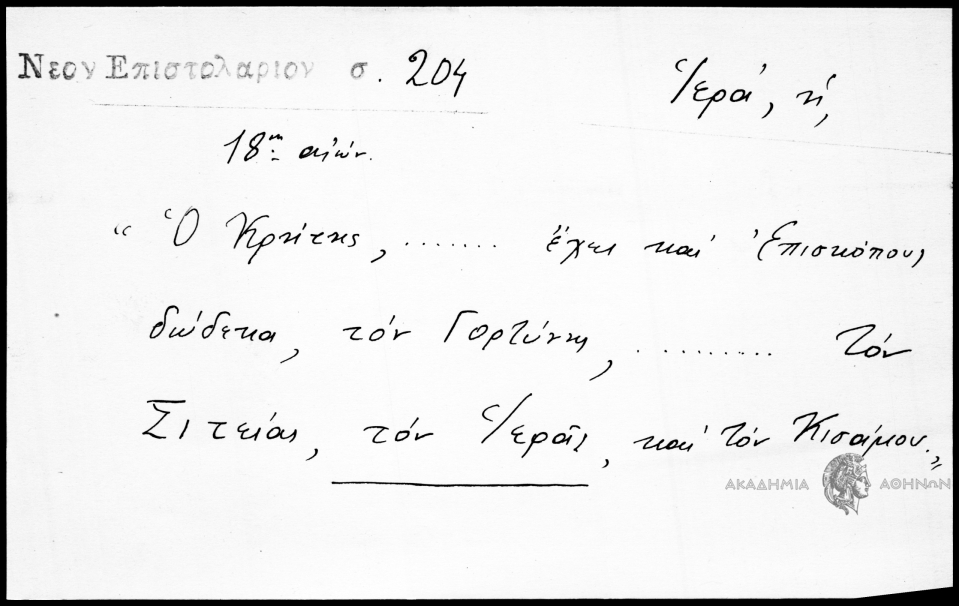 Νεον Επιστολαριον σ. 204
Ἱερά, ἡ,
18ος αἰών.
“ Ὁ Κρήτης, ........ ἔχει καί Ἐπισκόπους
δώδεκα, τόν Γορτύνης, .......... τόν
Σιτείας, τόν Ἱερᾶς, καί τόν Κισάμου.„
ΑΚΑΔΗΜΙΑ ΑΘΗΝΩΝ